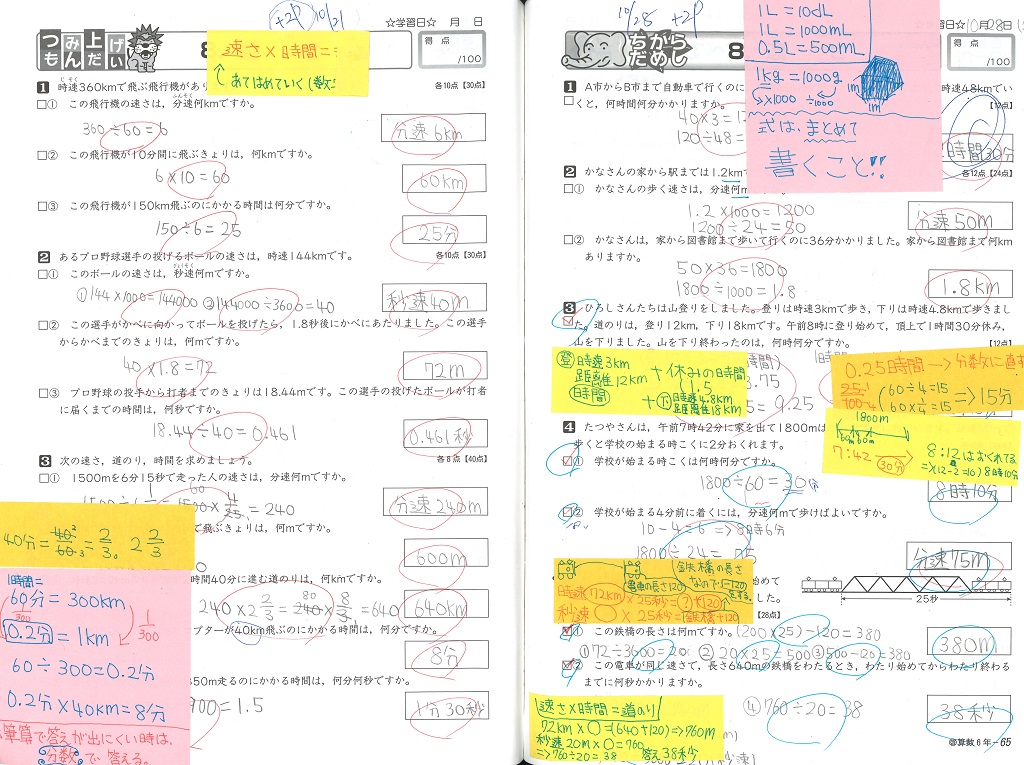 +2P 10/21
☆学習日☆ 月 日
つみ上げ
もんだい
8
得点
/100
速さ×時間=
↑あてはめていく(数に
1 時速360kmで飛ぶ飛行機があり
各10点【30点】
□① この飛行機の速さは，分速何kmですか。
360÷60=6
分速6km
□② この飛行機が10分間に飛ぶきょりは，何kmですか。
6×10=60
60km
□③ この飛行機が150km飛ぶのにかかる時間は何分ですか。
150÷6=25
25分
2 あるプロ野球選手の投げるボールの速さは，時速144kmです。
各10点【30点】
□① このボールの速さは，秒速何mですか。
①144×1000=144000 ②144000÷3600=40
秒速40m
□② この選手がかべに向かってボールを投げたら，1.8秒後にかべにあたりました。この選手
からかべまでのきょりは，何mですか。
40×1.8=72
72m
□③ プロ野球の投手から打者までのきょりは18.44mです。この選手の投げたボールが打者
に届くまでの時間は，何秒ですか。
18.44÷40=0.461
0.461秒
3 次の速さ，道のり，時間を求めましょう。
各8点【40点】
□① 1500mを6分15秒で走った人の速さは，分速何mですか。
=240
分速240m
で飛ぶきょりは，何mですか。
600m
40分=40/60=2/3。2 2/3
時間40分に進む道のりは，何kmですか。
240×2 2/3=240×8/3=640
640km
1時間=
60分=300km
1/300
0.2分=1km
1/300
60÷300=0.2分
0.2分×40km=8分
プターが40km飛ぶのにかかる時間は，何分ですか。
8分
850m走るのにかかる時間は，何分何秒ですか。
900=1.5
1分30秒
筆算で答えが出にくい時は、
分数で答える。
10/28 +2P
ちから
だめし
8
☆学習日 10月28日
得点
/100
1L=10dL
1L=1000mL
0.5L=500mL
1kg=1000g
×1000 ÷1000
1m
1m
式は、まとめて
書くこと!!
1 A市からB市まで自動車で行くのに
時速48kmでい
くと，何時間何分かかりますか。
【12点】
40×3=12
120÷48=
時間30分
2 かなさんの家から駅までは1.2kmで
各12点【24点】
□① かなさんの歩く速さは，分速何m
1.2×1000=1200
1200÷24=50
分速50m
□② かなさんは，家から図書館まで歩いて行くのに36分かかりました。家から図書館まで何km
ありますか。
50×36=1800
1800÷1000=1.8
1.8km
3 ひろしさんたちは山登りをしました。登りは時速3kmで歩き，下りは時速4.8kmで歩きまし
た。道のりは，登り12km，下り18kmです。午前8時に登り始めて，頂上で1時間30分休み，
山を下りました。山を下り終わったのは，何時何分ですか。
【12点】
登 時速3km
距離12km
時間
+休みの時間
1.5
+下 時速4.8km
距離18km
3.75
=9.25
0.25時間→分数に直す
25/100=1/4
(60÷4=15
60×1/4=15
⇒15分
1800m
60m60m
7:42→
30分
8:12はおくれてる
⇒(12-2=10)8時10分
4 たつやさんは，午前7時42分に家を出て1800mは
歩くと学校の始まる時こくに2分おくれます。
□① 学校が始まる時こくは何時何分ですか。
1800÷60=30分
8時10分
□② 学校が始まる4分前に着くには，分速何mで歩けばよいですか。
10-4=6⇒8時6分
1800÷24=75
分速75m
鉄橋の長さ
なので(-120)
をする。
電車の長さ120
時速72km×25秒=(?)+120
秒速○×25秒=鉄橋+120
始めて
した。
【28点】
25秒
□① この鉄橋の長さは何mですか。
(200×25)-120=380
①72÷3600=20 ②20×25=500 ③500-120=380
380m
□② この電車が同じ速さで，長さ640mの鉄橋をわたるとき，わたり始めてからわたり終わる
までに何秒かかりますか。
速さ×時間=道のり
72km×○=(640+120)⇒760m
秒速20m×○=760
⇒760÷20=38 答え38秒
④760÷20=38
38秒
算数6年―65